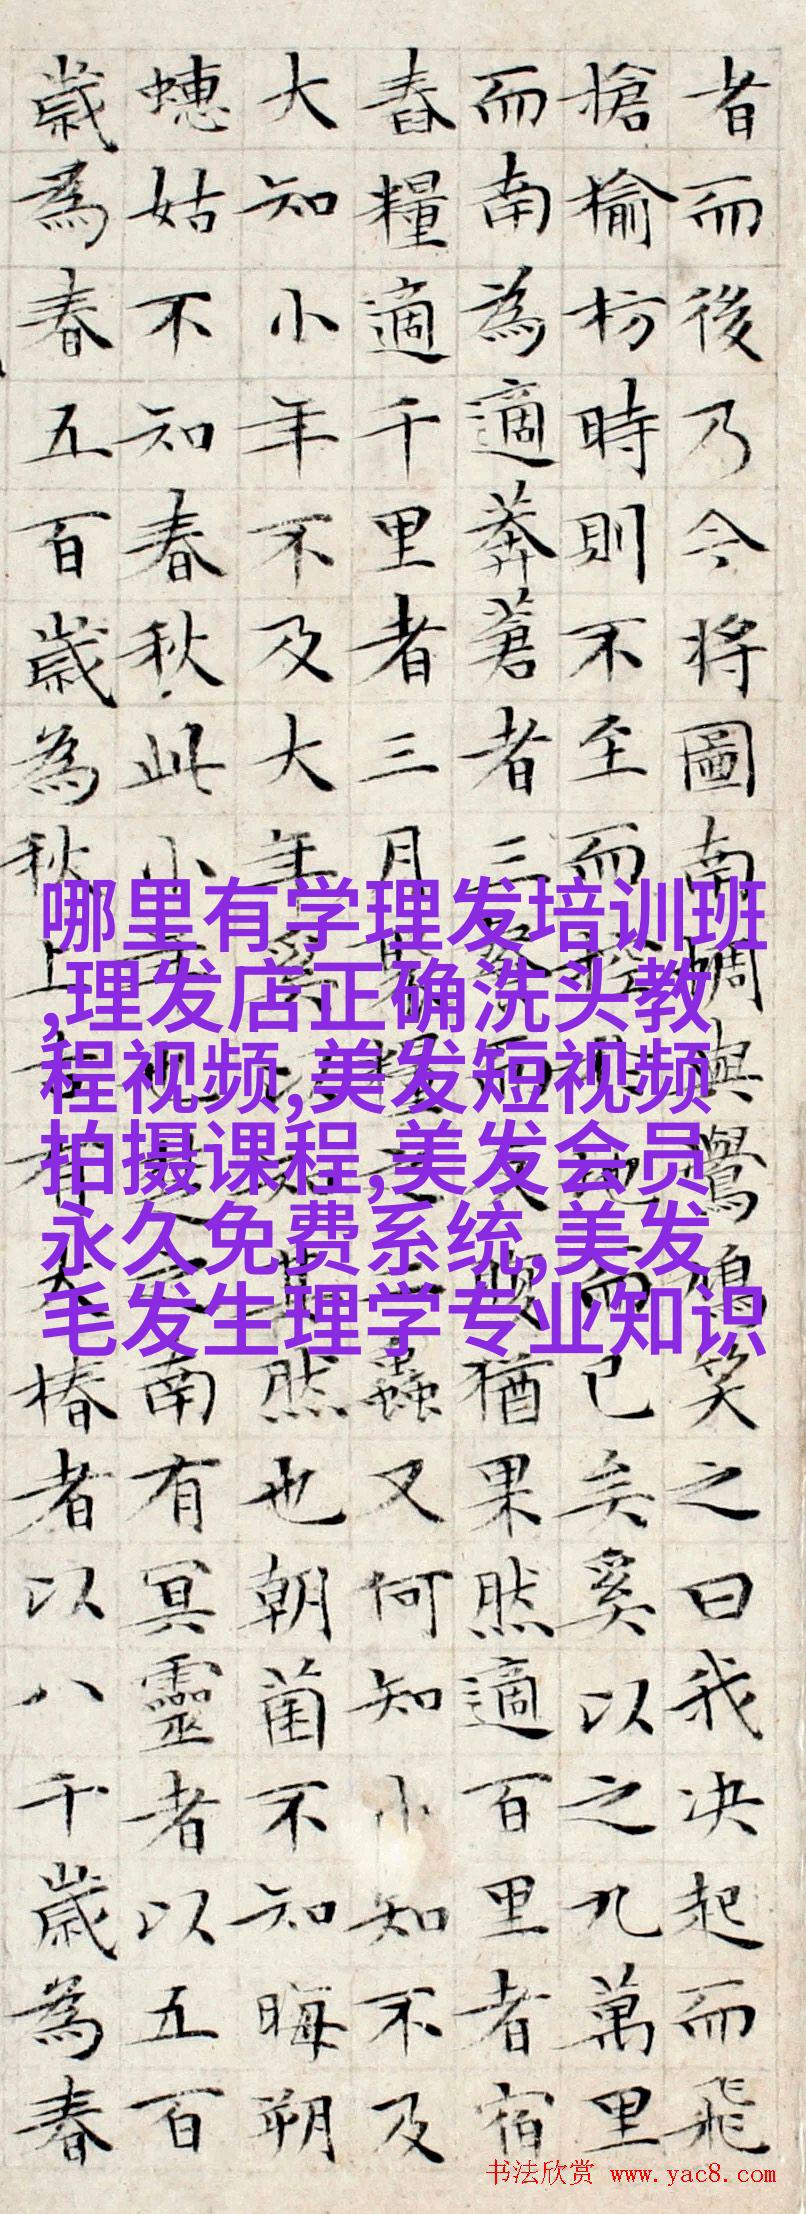 者而後乃今將圖南蜩與鷽鳩笑之曰我决起而飛
搶榆枋時則不至而控扵地而已矣奚以之九萬里
而南為適莽蒼者三飡而反腹猶果然適百里者宿
舂糧適千里者三月聚糧之二蟲又何知小知不及
大知小年不及大年奚以知其然也朝菌不知晦朔
蟪姑不知春秋此小年也楚之南有冥靈者以五百
歲為春五百歲為秋上古有大椿者以八千歲為春
哪里有学理发培训班
,理发店正确洗头教
程视频,美发短视频
拍摄课程,美发会员
永久免费系统,美发
毛发生理学专业知识
书法欣赏 www.yac8.com